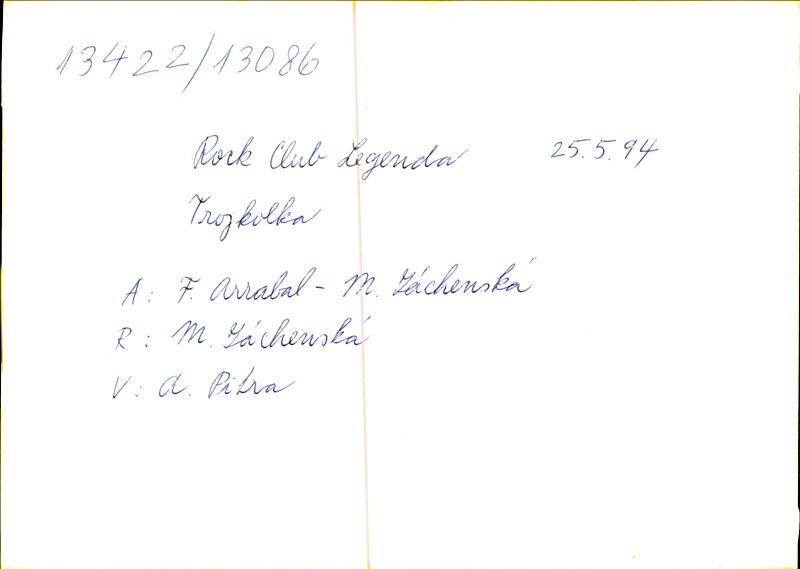 13422/13086
Rock Club Legenda 25.5.94
Trojkolka
A: F. Arrabal - M. Záchenská
R: M. Záchenská
V: A. Pitra